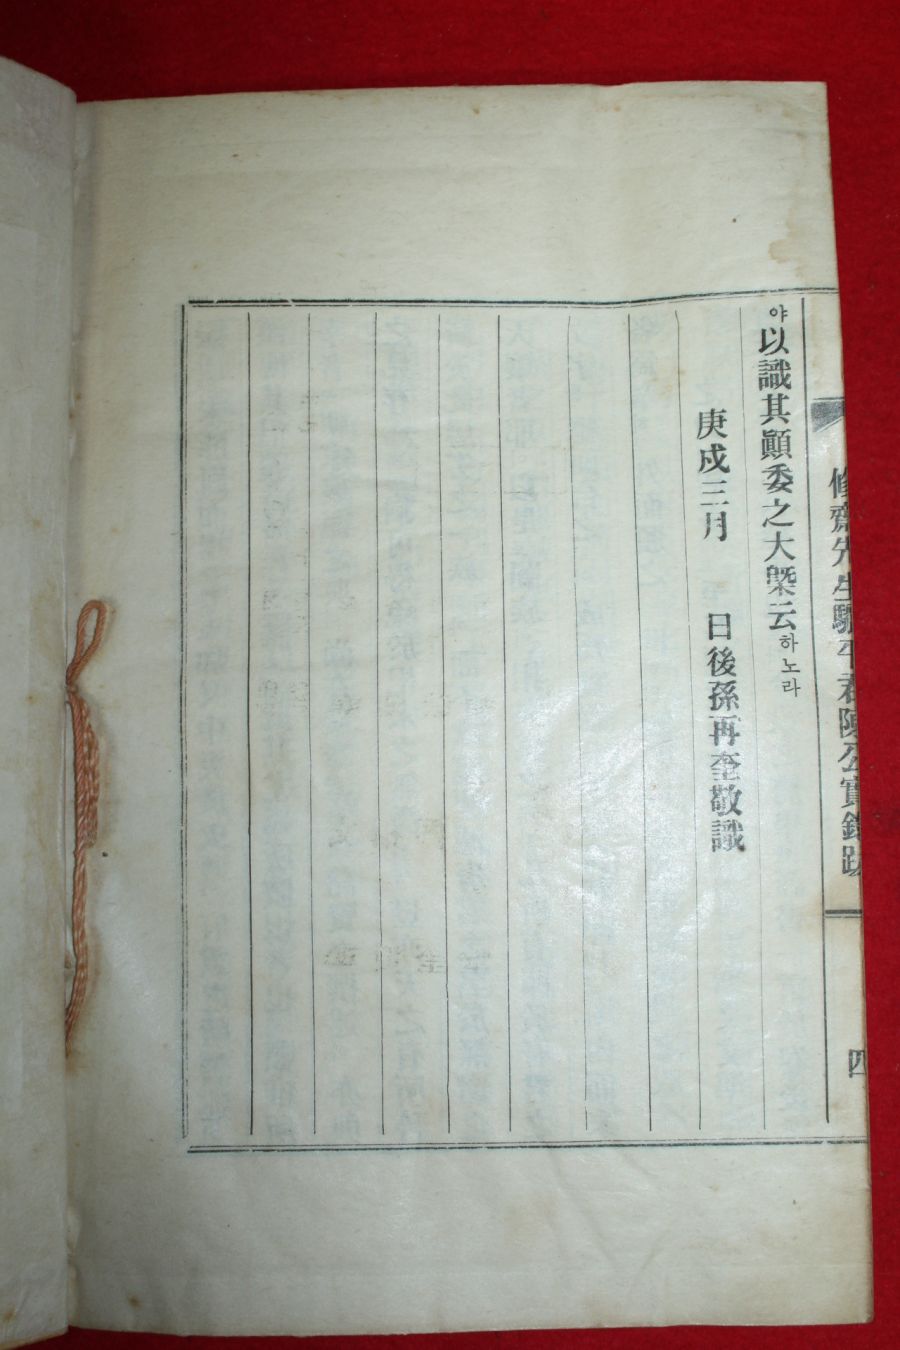 야以識其顚委之大槩云하노라
庚戍三月 日後孫再奎敬識
修齋先生驪平君陳公實錄跋
四